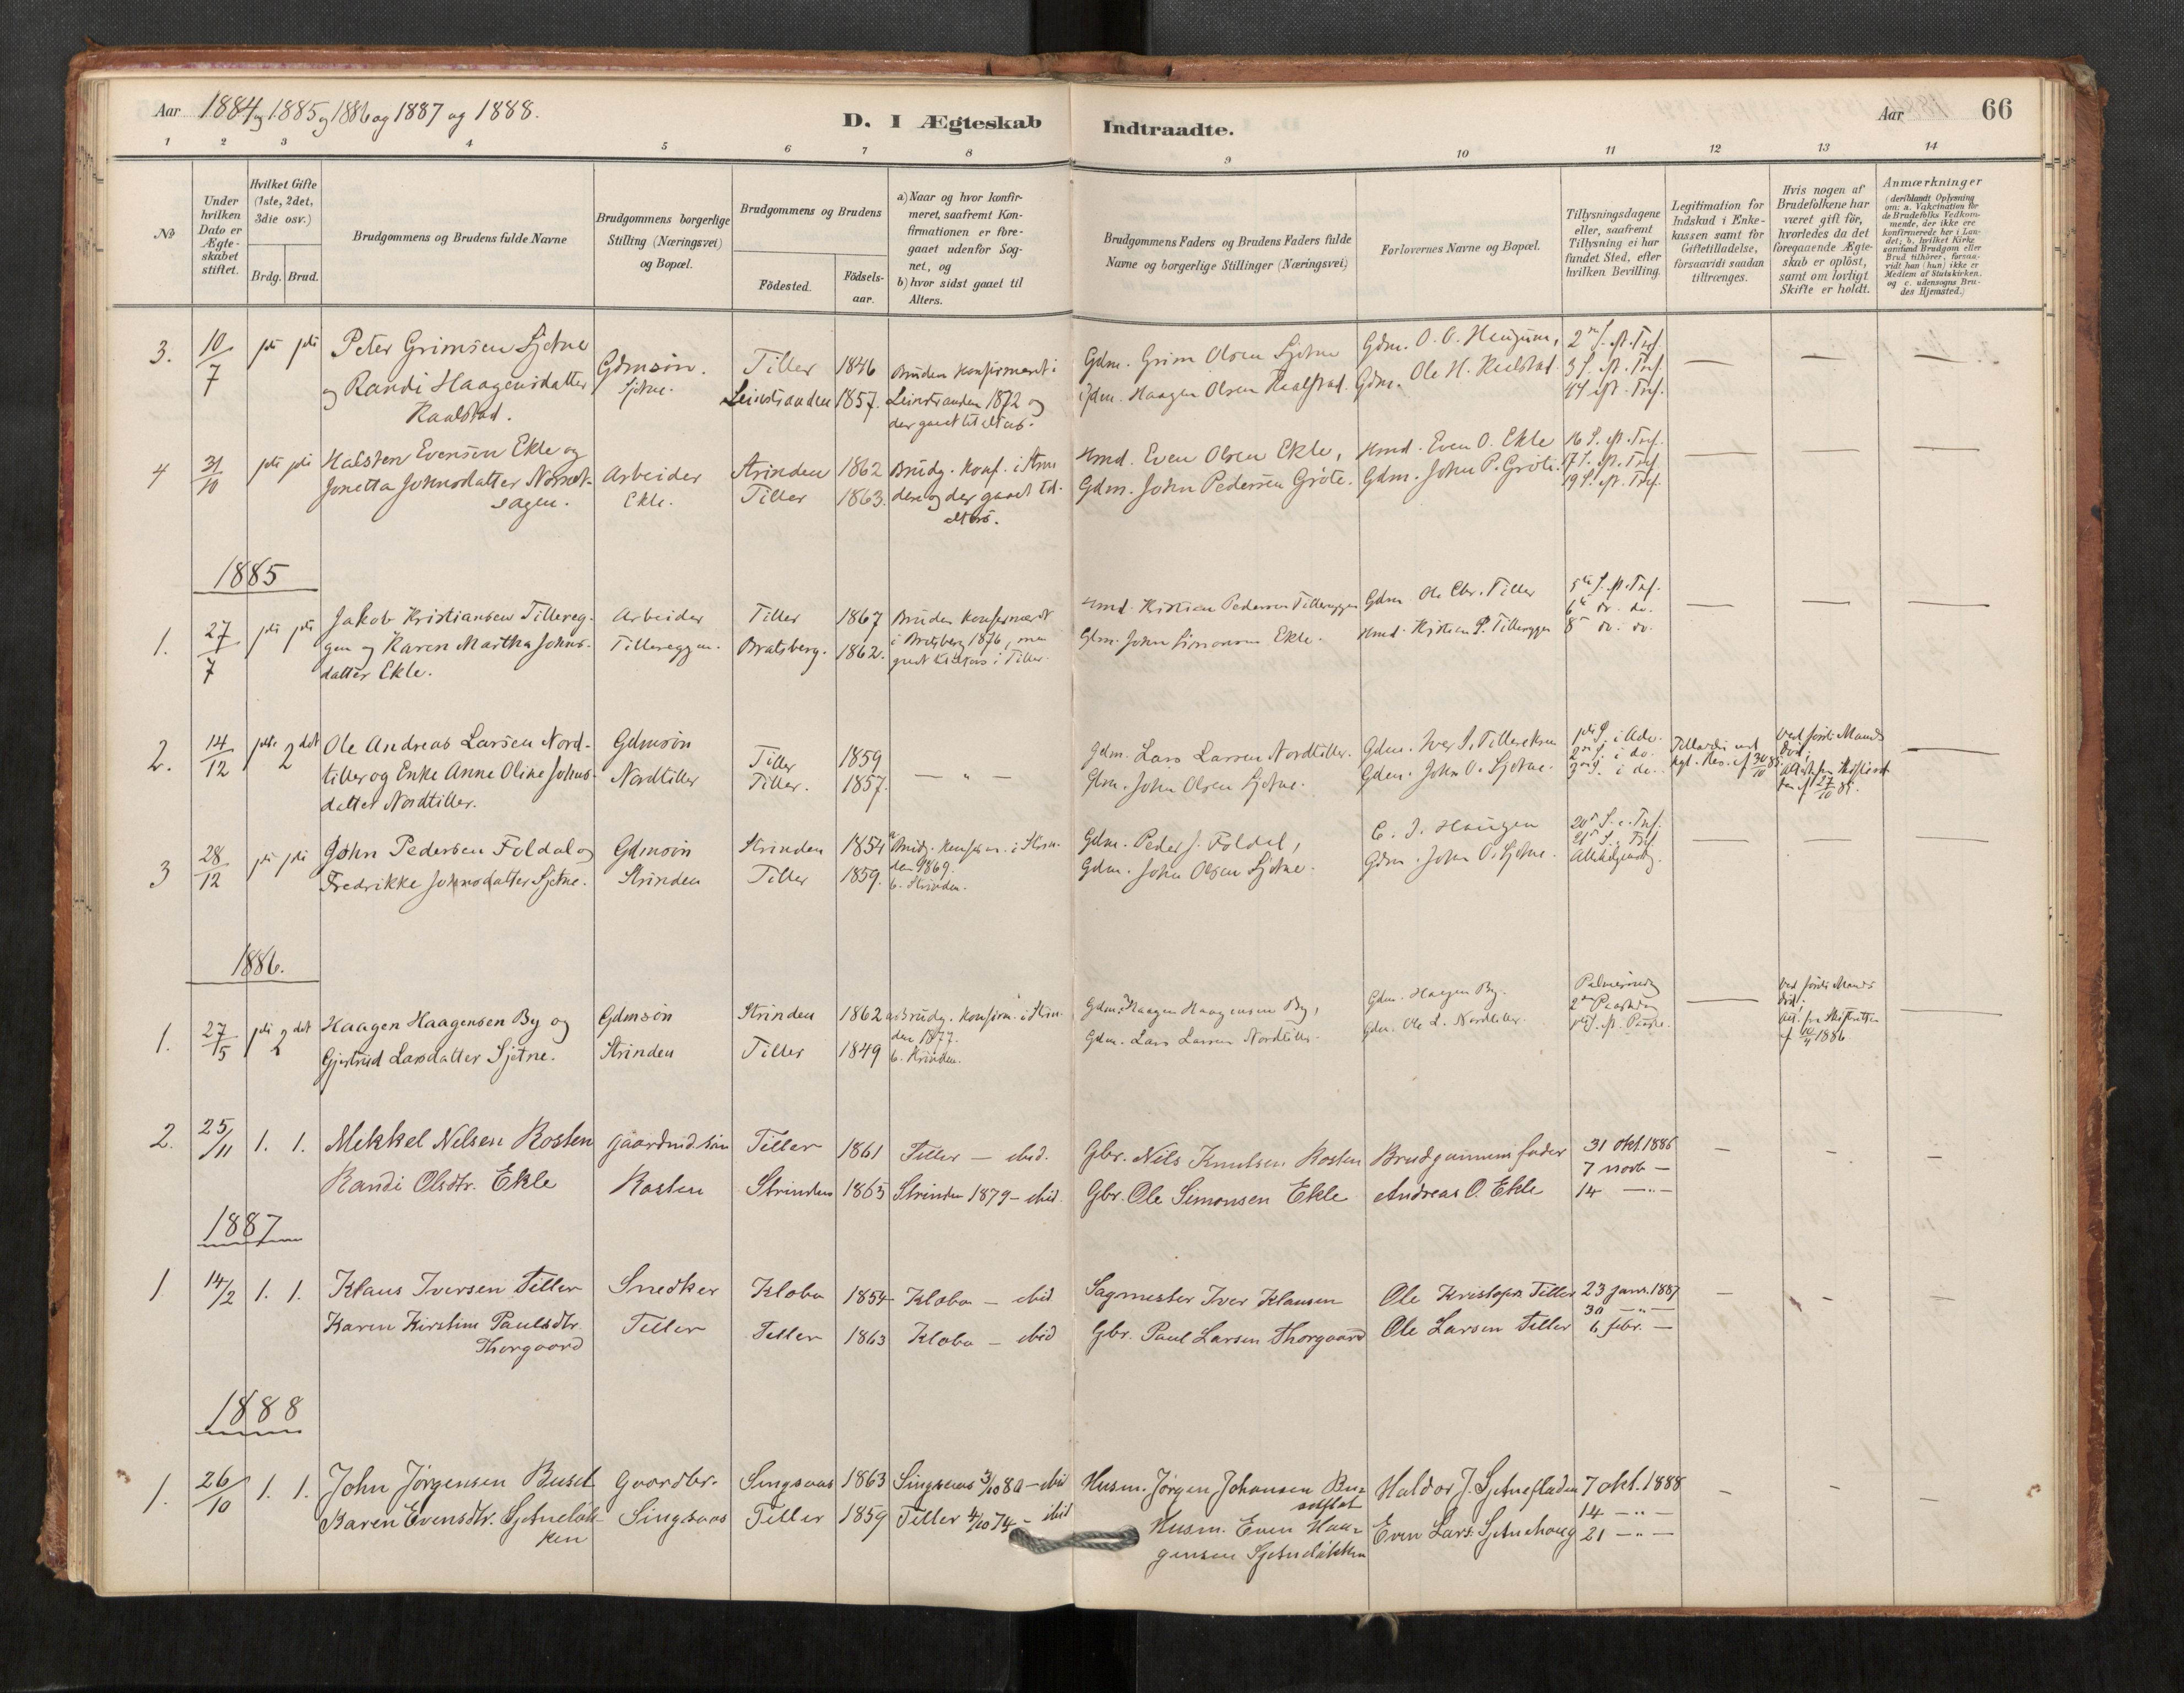 Aar 1884 og 1885 og 1886 og 1887 og 1888.
D. I Ægteskab Indtraadte.
Aar 66
1 2 3 4 5 6 7 8 9 10 11 12 13 14
No
Under hvilken Dato er Ægteskabet stiftet.
Hvilket Gifte (1ste, 2det, 3die osv.)
Brdg. Brud.
Brudgommens og Brudens fulde Navne
Brudgommens borgerlige Stilling (Næringsvei) og Bopæl.
Brudgommens og Brudens
Födested.
Födsels-aar.
a) Naar og hvor konfir-
meret, saafremt Kon-
firmationen er fore-
gaaet udenfor Sog-
net, og
b) hvor sidst gaaet til
Alters.
Brudgommens Faders og Brudens Faders fulde
Navne og borgerlige Stillinger (Næringsvei)
Forlovernes Navne og Bopæl.
Tillysningsdagene
eller, saafremt
Tillysning ei har
fundet Sted, efter
hvilken Bevilling.
Legitimation for
Indskud i Enke-
kassen samt for
Giftetilladelse,
forsaavidt saadan
tiltrænges.
Hvis nogen af
Brudefolkene har
været gift för,
hvorledes da det
foregaaende Ægte-
skab er oplöst,
samt om lovligt
Skifte er holdt.
Anmærkninger
(deriblandt Oplysning
om: a. Vakcination for
de Brudefolks Vedkom-
mende, der ikke ere
konfirmerede her i Lan-
det; b. hvilket Kirke-
samfund Brudgom eller
Brud tilhörer, forsaa-
vidt han (hun) ikke er
Medlem af Statskirken.
og c. udensogns Bru-
des Hjemsted.)
3. 10/7 1ste 1ste Peter Grimsen Sjetne Gdmsön. Tiller 1846 Bruden konfirmeret i Gdm. Grim Olsen Sjetne Gdm. O. O. Haugum, 2n S. e. Tref.
og Randi Haagensdatter Sjetne. Leinstranden 1857. Leinstranden 1872 og Gdm. Haagen Olsen Raalstad. Gdm. Ole H. Raalstad. 3 S. e. Tref.
Raalstad. der gaaet til Alters. 4 S. e. Tref.
4 31/10 1ste 1ste Halsten Evensen Ekle og Arbeider Strinden 1862 Brudg. konf. i Strin Hmd. Even Olsen Ekle, Hmd. Even O. Ekle 16 S. e. Tref.
Jonetta Johnsdatter Ekle. Tiller 1863. den og der gaaet til Gdm. John Pedersen Gröte. Gdm. John P. Gröte. 17 S. e. Tref.
sagen. Alters. 19 S. e. Tref.
1885
1. 27/7 1ste 1ste Jakob Kristiansen Tillereg- Arbeider Tiller 1867 Bruden konfirmeret Hmd. Kristian Pedersen Tillereggen Gdm. Ole Chr. Tiller 5te S. e. Tref.
gen og Karen Martha Johns- Tillereggen. Bratsberg. 1862. i Bratsberg 1876, men Gdm. John Simonsen Ekle. Hmd. Kristian P. Tillereggen 6te do. do.
datter Ekle. gaaet til Alters i Tiller. 8 do. do.
2. 14/12 1ste 2det Ole Andreas Larsen Nord- Gdmsön Tiller 1859 — „ — Gdm. Lars Larsen Nordtiller. 1ste S. i Adv. Ved förste Mands
tiller og Enke Anne Oline Johns- Nordtiller Tiller. 1857. Gdm. John Olsen Sjetne. Gdm. John O. Sjetne. 2n S. i do. Död.
datter Nordtiller. 3n S. i do.
3 28/12 1ste 1ste John Pedersen Foldal og Gdmsön Strinden 1854 a. Brudg. konfirm. i Strin- Gdm. Peder J. Foldal, C. J. Haugen 20n S. e. Tref.
Fredrikke Johnsdatter Sjetne. Strinden Tiller 1859. den 1869. Gdm. John Olsen Sjetne. Gdm. John O. Sjetne. 21n S. e. Tref.
b. Strinden. Allehelgensdag.
1886.
1. 27/5 1ste 2det Haagen Haagensen By og Gdmsön Strinden 1862 a. Brudg. konfirm. i Strin- Gdm. Haagen Haagensen By, Gdm. Haagen By. Palmesöndag Ved förste Mands
Gjertrud Larsdatter Sjetne. Strinden Tiller 1849 den 1877. Gdm. Lars Larsen Nordtiller. Gdm. Ole L. Nordtiller. 2den Paaskedag Död.
b. Strinden. 1ste S. e. Paaske. 1886.
2. 25/11 1. 1. Mikkel Nilsen Rosten Gaardmd.sön Tiller 1861 Tiller — ibid. Gbr. Nils Knutsen Rosten Brudgommens fader 31 okt. 1886
Randi Olsdtr. Ekle Rosten Strinden 1865 Strinden 1879 — ibid. Gbr. Ole Simonsen Ekle Andreas O. Ekle 7 novb —
14 — „ —
1887
1 14/2 1. 1. Klaus Iversen Tiller Snedker Klæbu 1854 Klæbu — ibid. Sagmester Iver Klausen Ole Kristofers. Tiller 23 janr. 1887
Karen Kirstine Paulsdtr. Tiller Tiller 1863 Klæbu — ibid Gbr. Paul Larsen Thorgaard Ole Larsen Tiller 30 — „ —
Thorgaard 6 febr. —
1888
1. 26/10 1. 1. John Jørgensen Buset Gaardbr. Singsaas 1863 Singsaas 3/10 80 — ibid Husm. Jørgen Johansen Bu- Haldor J. Sjetnefladen 7 okt. 1888
Karen Evensdtr. Sjetneløk- Singsaas Tiller 1859 Tiller 4/10 74 — ibid Husm. Even Haa- Even Lars. Sjetnehaug 14 — „ —
ken gensen Sjetneløkken 21 — „ —